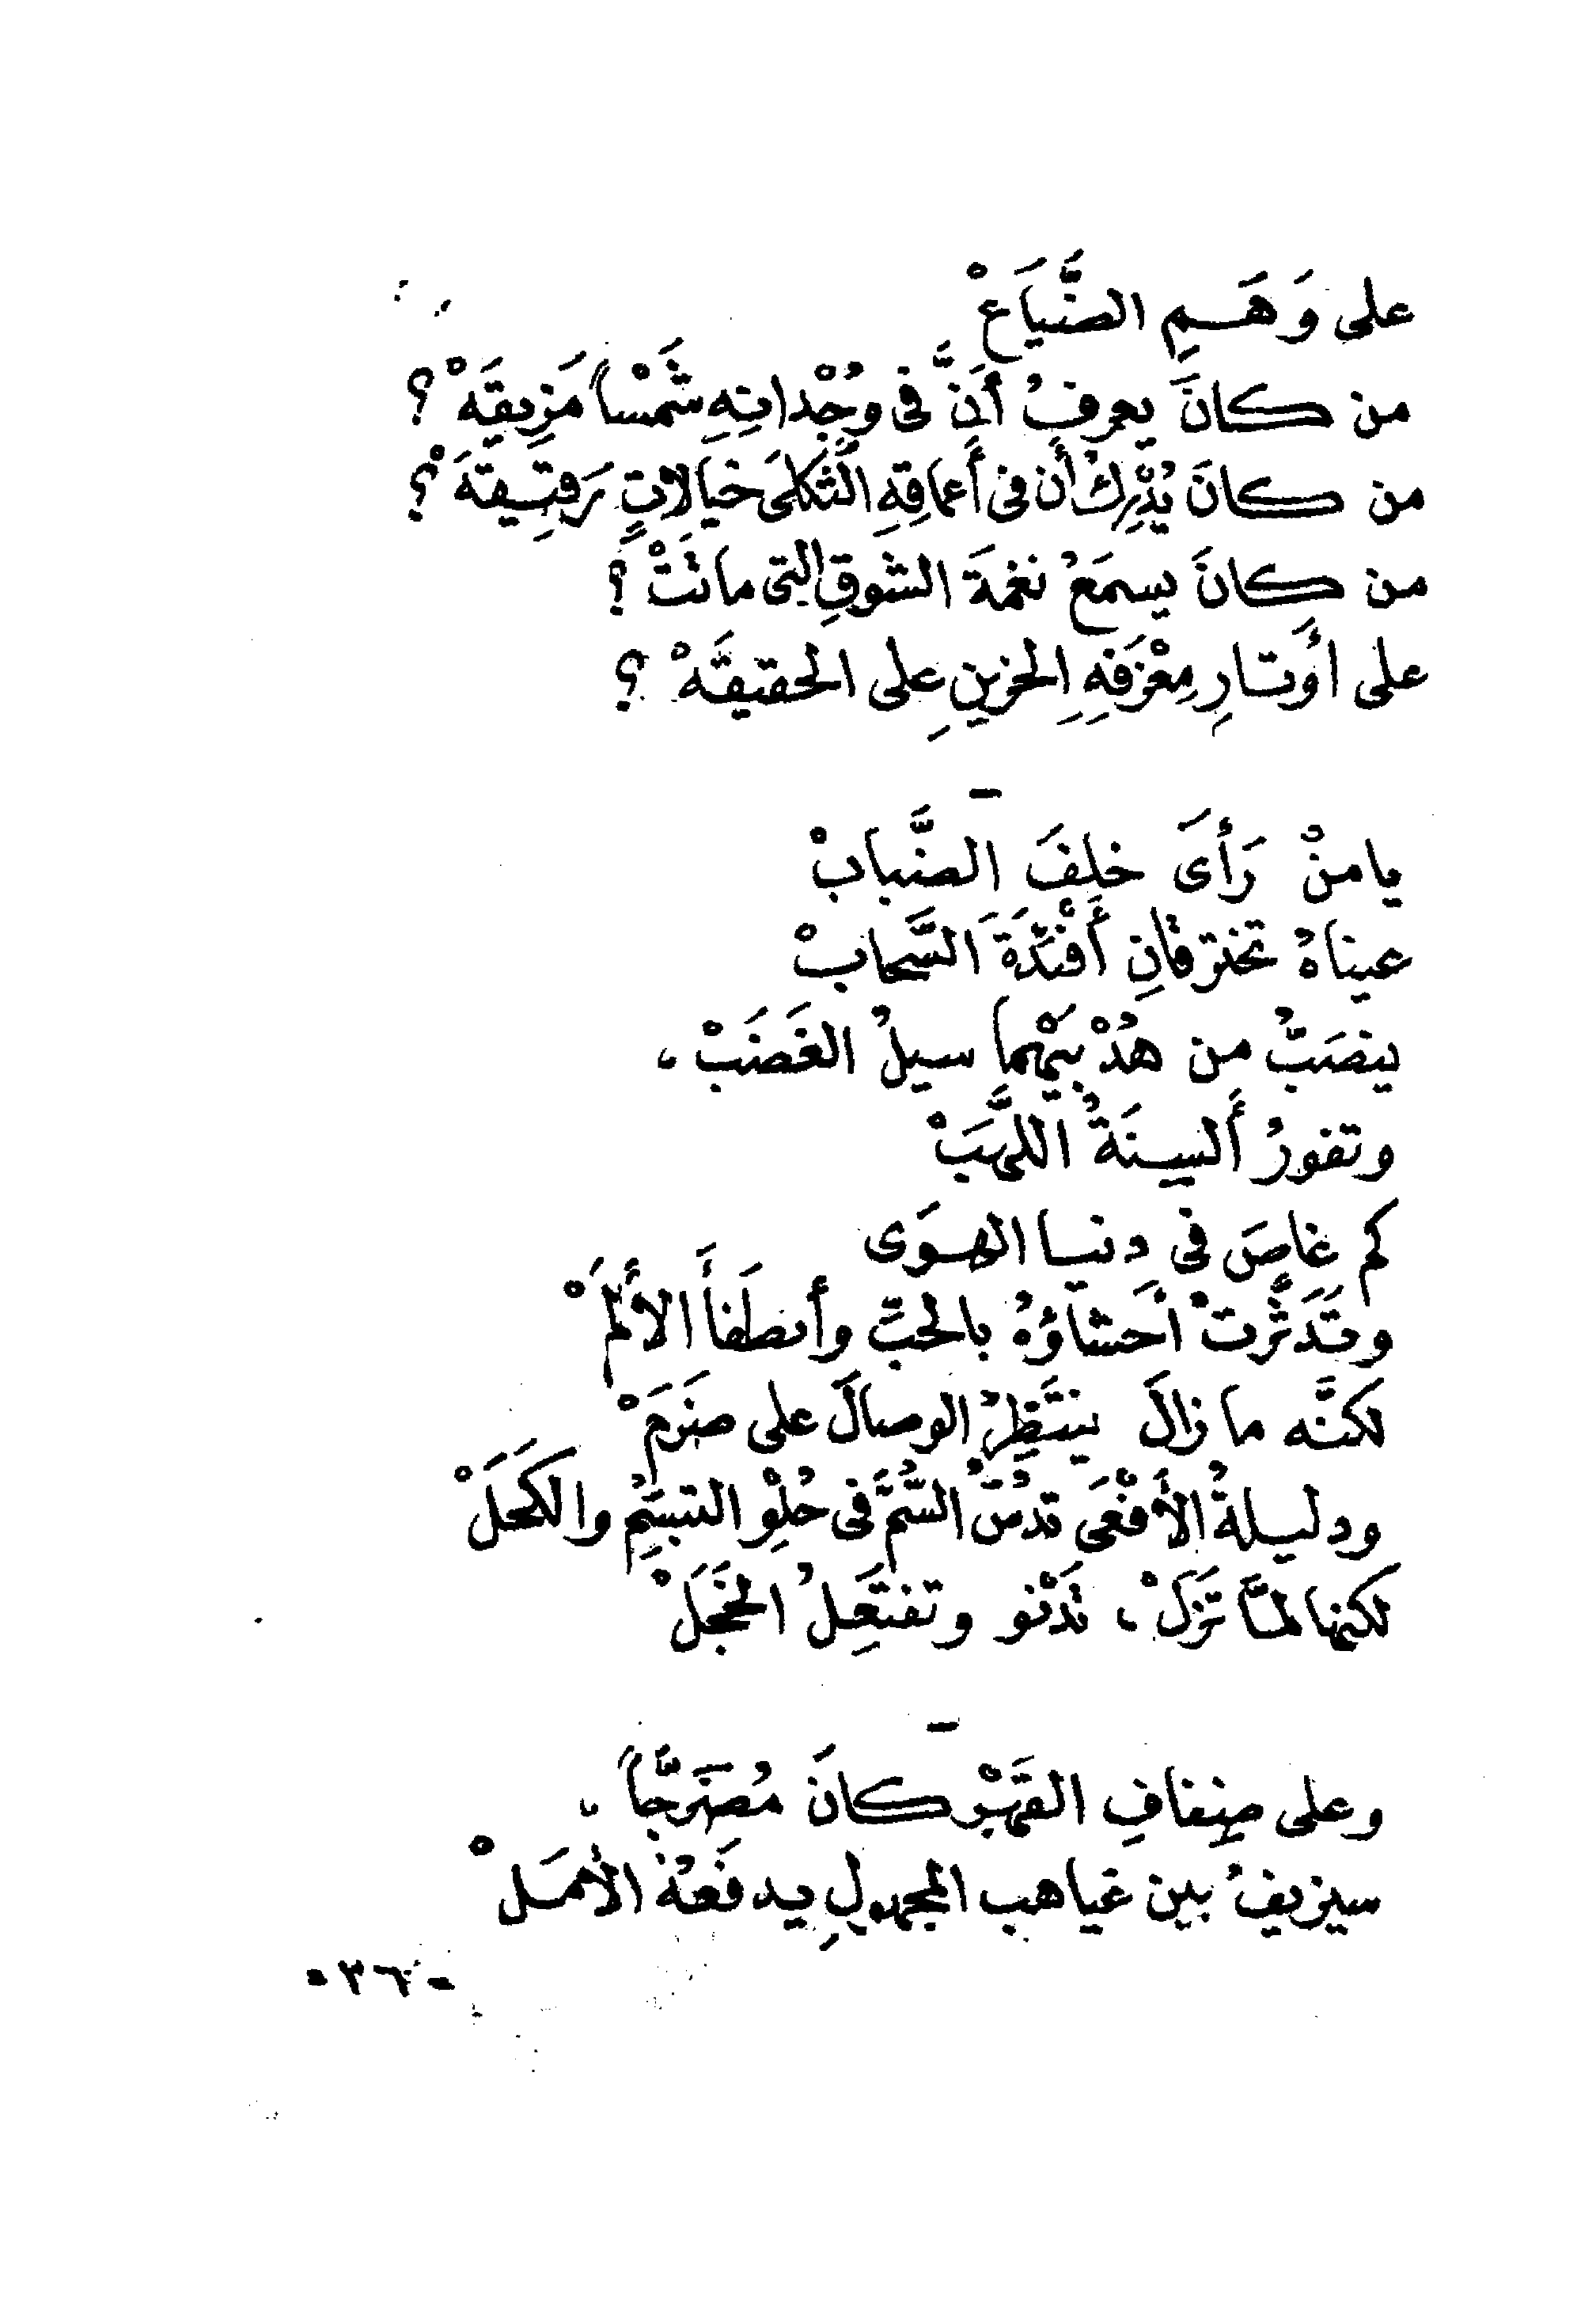 على وَهَمِ الضَّيَاعْ
من كانَ يعرفُ أنَّ فى وِجْدانِهِ شَمْساً مَزِيقَهْ ؟
من كانَ يُدْرِكُ أن فى أَعماقِهِ الثَّكلَى خيالاتٍ رَقِيقَهْ ؟
من كانَ يسمَعُ نغمةَ الشوقِ التى ماتَتْ ؟
على أوَتارِ مِعْزَفِهِ الحزينِ على الحقيقَهْ ؟
–
يامنْ رَأَى خلفَ الضَّبابْ
عيناهُ تخترقانِ أَفْئدَةَ السَّحابْ
ينصَبُّ من هُدْبَيْهِما سيلُ الغَضَبْ ،
وتفورُ أَلسِنَةُ اللَّهَبْ
كم غاصَ فى دنيا الهوَى
وتَدَثَّرتْ أحشاؤهُ بالحبِّ وأنطَفأَ الأَلَمْ
لكنَّه ما زالَ ينتَظِرُ الوصالَ على ضَرَمْ
ودليلةُ الأَفْعَى تدُسُّ السُّمَّ فى حُلْوِ التبسُّمِ والكَحَلْ
لكنها لمَّا تَزَلْ ، تَدْنو وتفتَعِلُ الخَجَلْ
–
وعلى ضِفافِ القَهْرِ كانَ مُضَرَّجاً ،
سيزيفُ بين غياهب المجهولِ يدفَعُهُ الأَمَلْ
- ٣٦ -